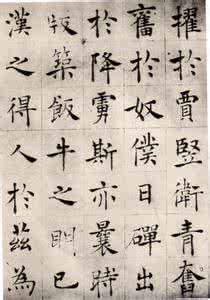 擢於賈豎衛青奮
奮於奴僕日磾出
於降虜斯亦曩時
版築飯牛之朋已
漢之得人於茲為